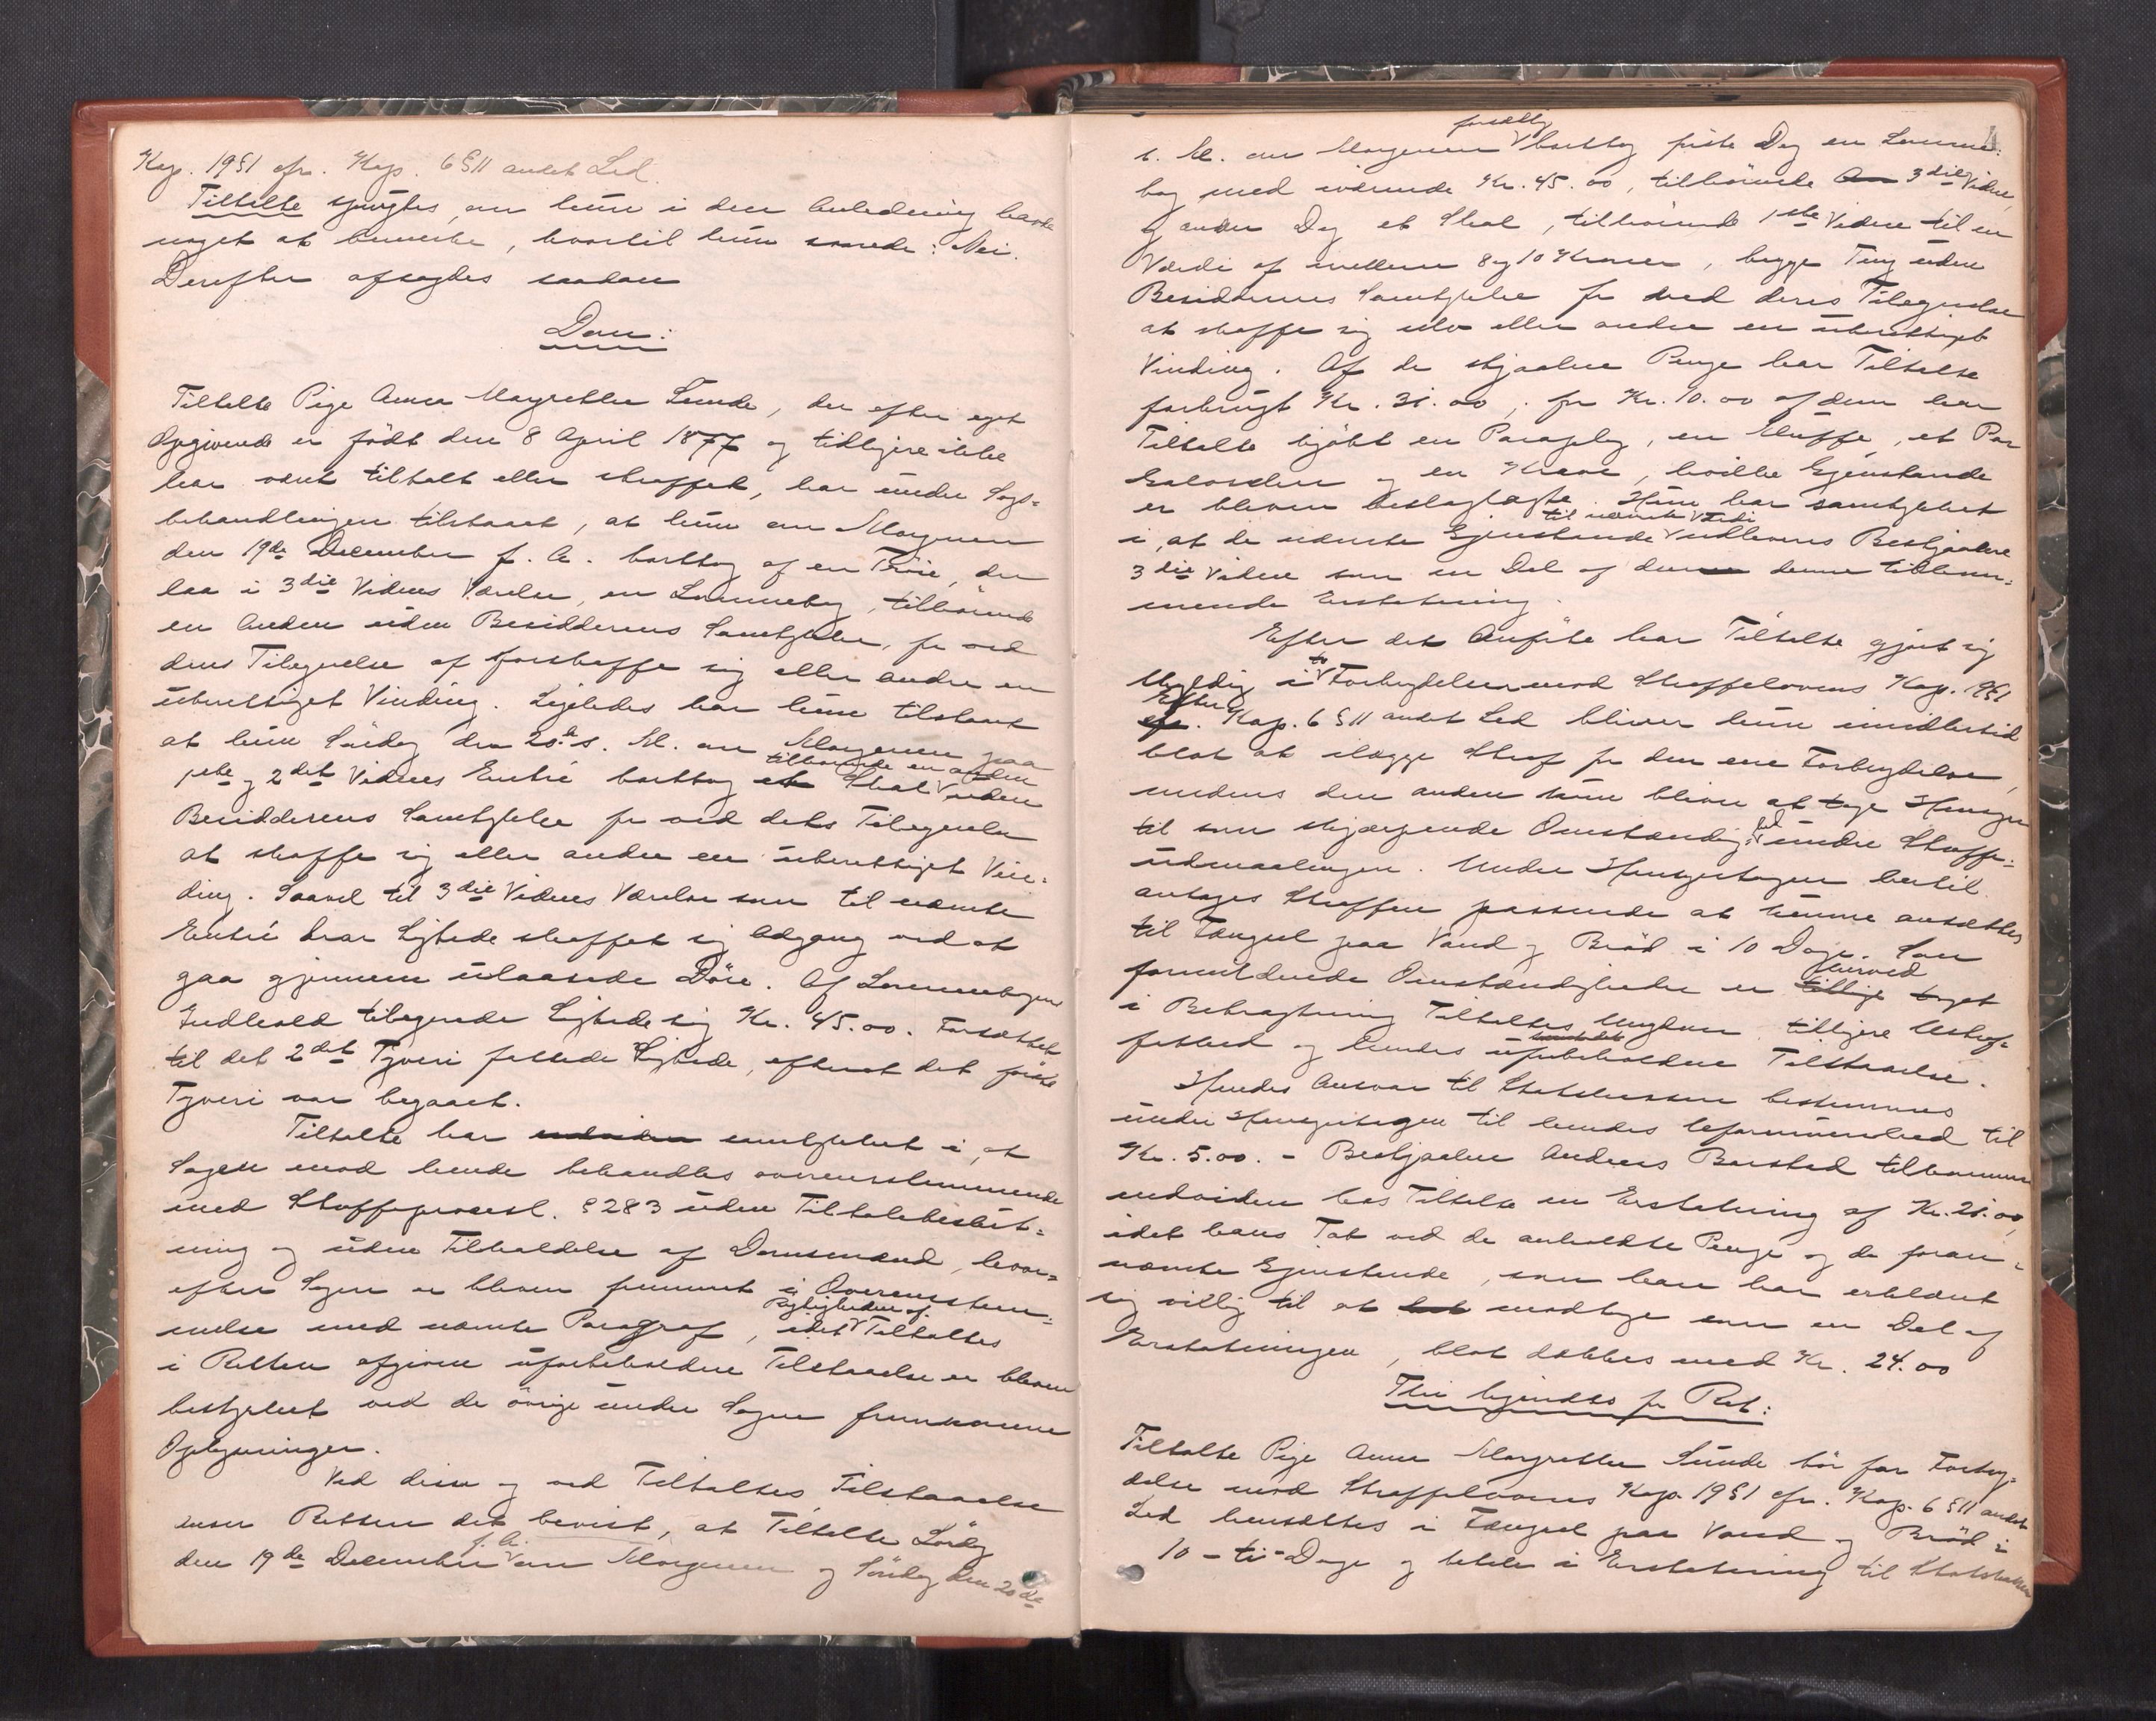 Kap. 19 § 1 cfr. Kap. 6 § 11 andet Led.
Tiltalte spurgtes, om hun i den Anledning havde
noget at bemerke, hvortil hun svarede: Nei.
Derefter afsagdes saadan
Dom:
Tiltalte Pige Anna Margrethe Sunde, der efter eget
Opgivende er født den 8 April 1877 og tidligere ikke
har været tiltalt eller straffet, har under Sags-
behandlingen tilstaaet, at hun om Morgenen
den 19de December f. A. borttog af en Trøie, der
laa i 3die Vidnes Værelse, en Lommebog, tilhørende
en Anden uden Besidderens Samtykke, for ved
dens Tilegnelse at forskaffe sig eller andre en
uberettiget Vinding. Ligeledes har hun tilstaaet
at hun Søndag den 20de s. M. om Morgenen paa
1ste og 2det Vidnes Entré borttog et Shal tilhørende en anden uden
Besidderens Samtykke for ved dets Tilegnelse
at skaffe sig eller andre en uberettiget Vin-
ding. Saavel til 3die Vidnes Værelse som til nævnte
Entré har Sigtede skaffet sig Adgang ved at
gaa gjennem ulaasede Døre. Af Lommebogens
Indhold tilegnede Sigtede sig Kr. 45.00. Forsættet
til det 2det Tyveri fattede Sigtede, efterat det første
Tyveri var begaaet.
Tiltalte har endvidere samtykket i, at
Sagen mod hende behandles overensstemmende
med Straffeprocesl. § 283 uden Tiltalebeslut-
ning og uden Tilkaldelse af Domsmænd, hvor-
efter Sagen er bleven fremmet i Overensstem-
melse med nævnte Paragraf, idet Rigtigheden af Tiltaltes
i Retten afgivne uforbeholdne Tilstaaelse er bleven
bestyrket ved de øvrige under Sagen fremkomne
Oplysninger.
Ved disse og ved Tiltaltes Tilstaaelse
anser Retten det bevist, at Tiltalte Lørdag
den 19de December f. A. om Morgenen og Søndag den 20de
s. M. om Morgenen forsætlig borttog første Dag en Lomme-
bog med iværende Kr. 45.00, tilhørende 3die Vidne,
og anden Dag et Shal, tilhørende 1ste Vidne til en
Værdi af mellem 8 og 10 Kroner, begge Ting uden
Besiddernes Samtykke for ved deres Tilegnelse
at skaffe sig selv eller andre en uberettiget
Vinding. Af de stjaalne Penge har Tiltalte
forbrugt Kr. 31.00; for Kr. 10.00 af dem har
Tiltalte kjøbt en Paraply, en Muffe, et Par
Galoscher og en Krave, hvilke Gjenstande
er bleven beslaglagte. Hun har samtykket
i, at de nævnte Gjenstande til nævnte Værdi udleveres Bestjaalne
3die Vidne som en Del af den denne tilkom-
mende Erstatning.
Efter det Anførte har Tiltalte gjort sig
skyldig i to Forbrydelser mod Straffelovens Kap. 19 § 1
Efter cfr. Kap. 6 § 11 andet Led bliver hun imidlertid
blot at ilægge Straf for den ene Forbrydelse,
medens den anden kun bliver at tage Hensyn
til som skjærpende Omstændighed under Straffe-
udmaalingen. Under Hensyntagen hertil
antages Straffen passende at kunne ansættes
til Fængsel paa Vand og Brød i 10 Dage. Som
formildende Omstændigheder er tillige herved taget
i Betragtning Tiltaltes Ungdom, tidligere Ustraf-
fethed og hendes uforbeholdne Tilstaaelse.
Hendes Ansvar til Statskassen bestemmes
under Hensyntagen til hendes Uformuenhed til
Kr. 5.00. – Bestjaalne Anders Barstad tilkommer
endvidere hos Tiltalte en Erstatning af Kr. 21.00,
idet hans Tab ved de anholdte Penge og de foran-
nævnte Gjenstande, som han har erklæret
sig villig til at modtage som en Del af
Erstatningen, blot dækkes med Kr. 24.00
Thi kjendes for Ret:
Tiltalte Pige Anna Margrethe Sunde bør for Forbry-
delse mod Straffelovens Kap. 19 § 1 cfr. Kap. 6 § 11 andet
Led hensættes i Fængsel paa Vand og Brød i
10 – ti – Dage og betale i Erstatning til Statskassen